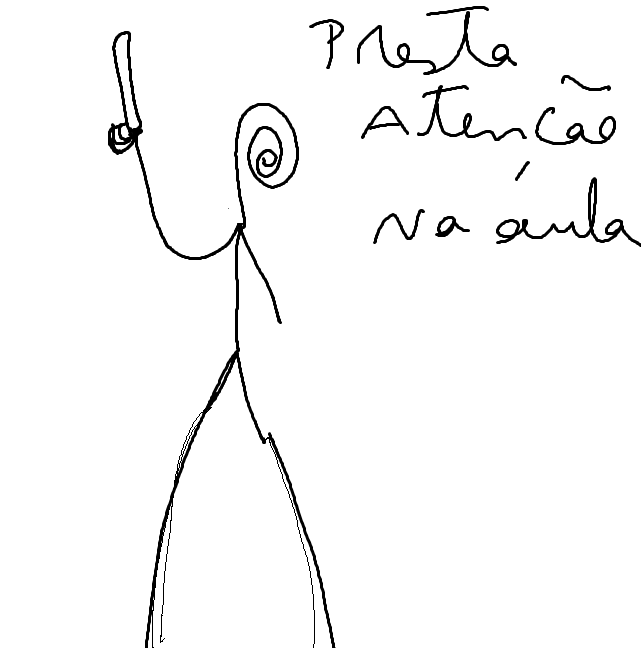 Presta
Atenção
na áula